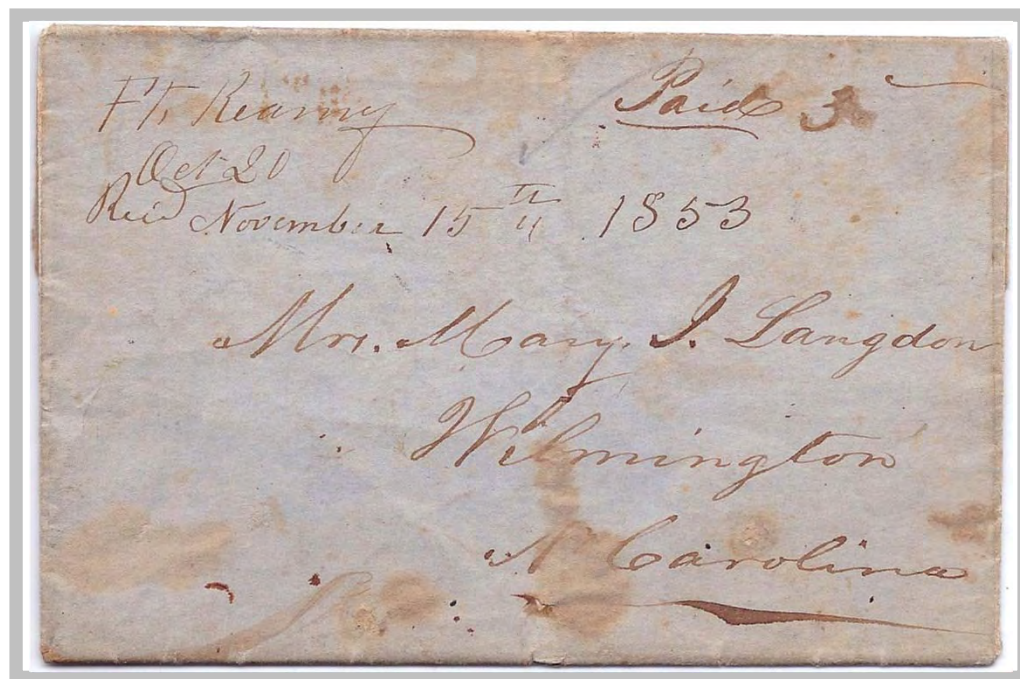 Ft. Kearny
Paid 3
Oct 20
Rec'd November 15 th 1853
Mrs. Mary J. Langdon
Wilmington
N Carolina